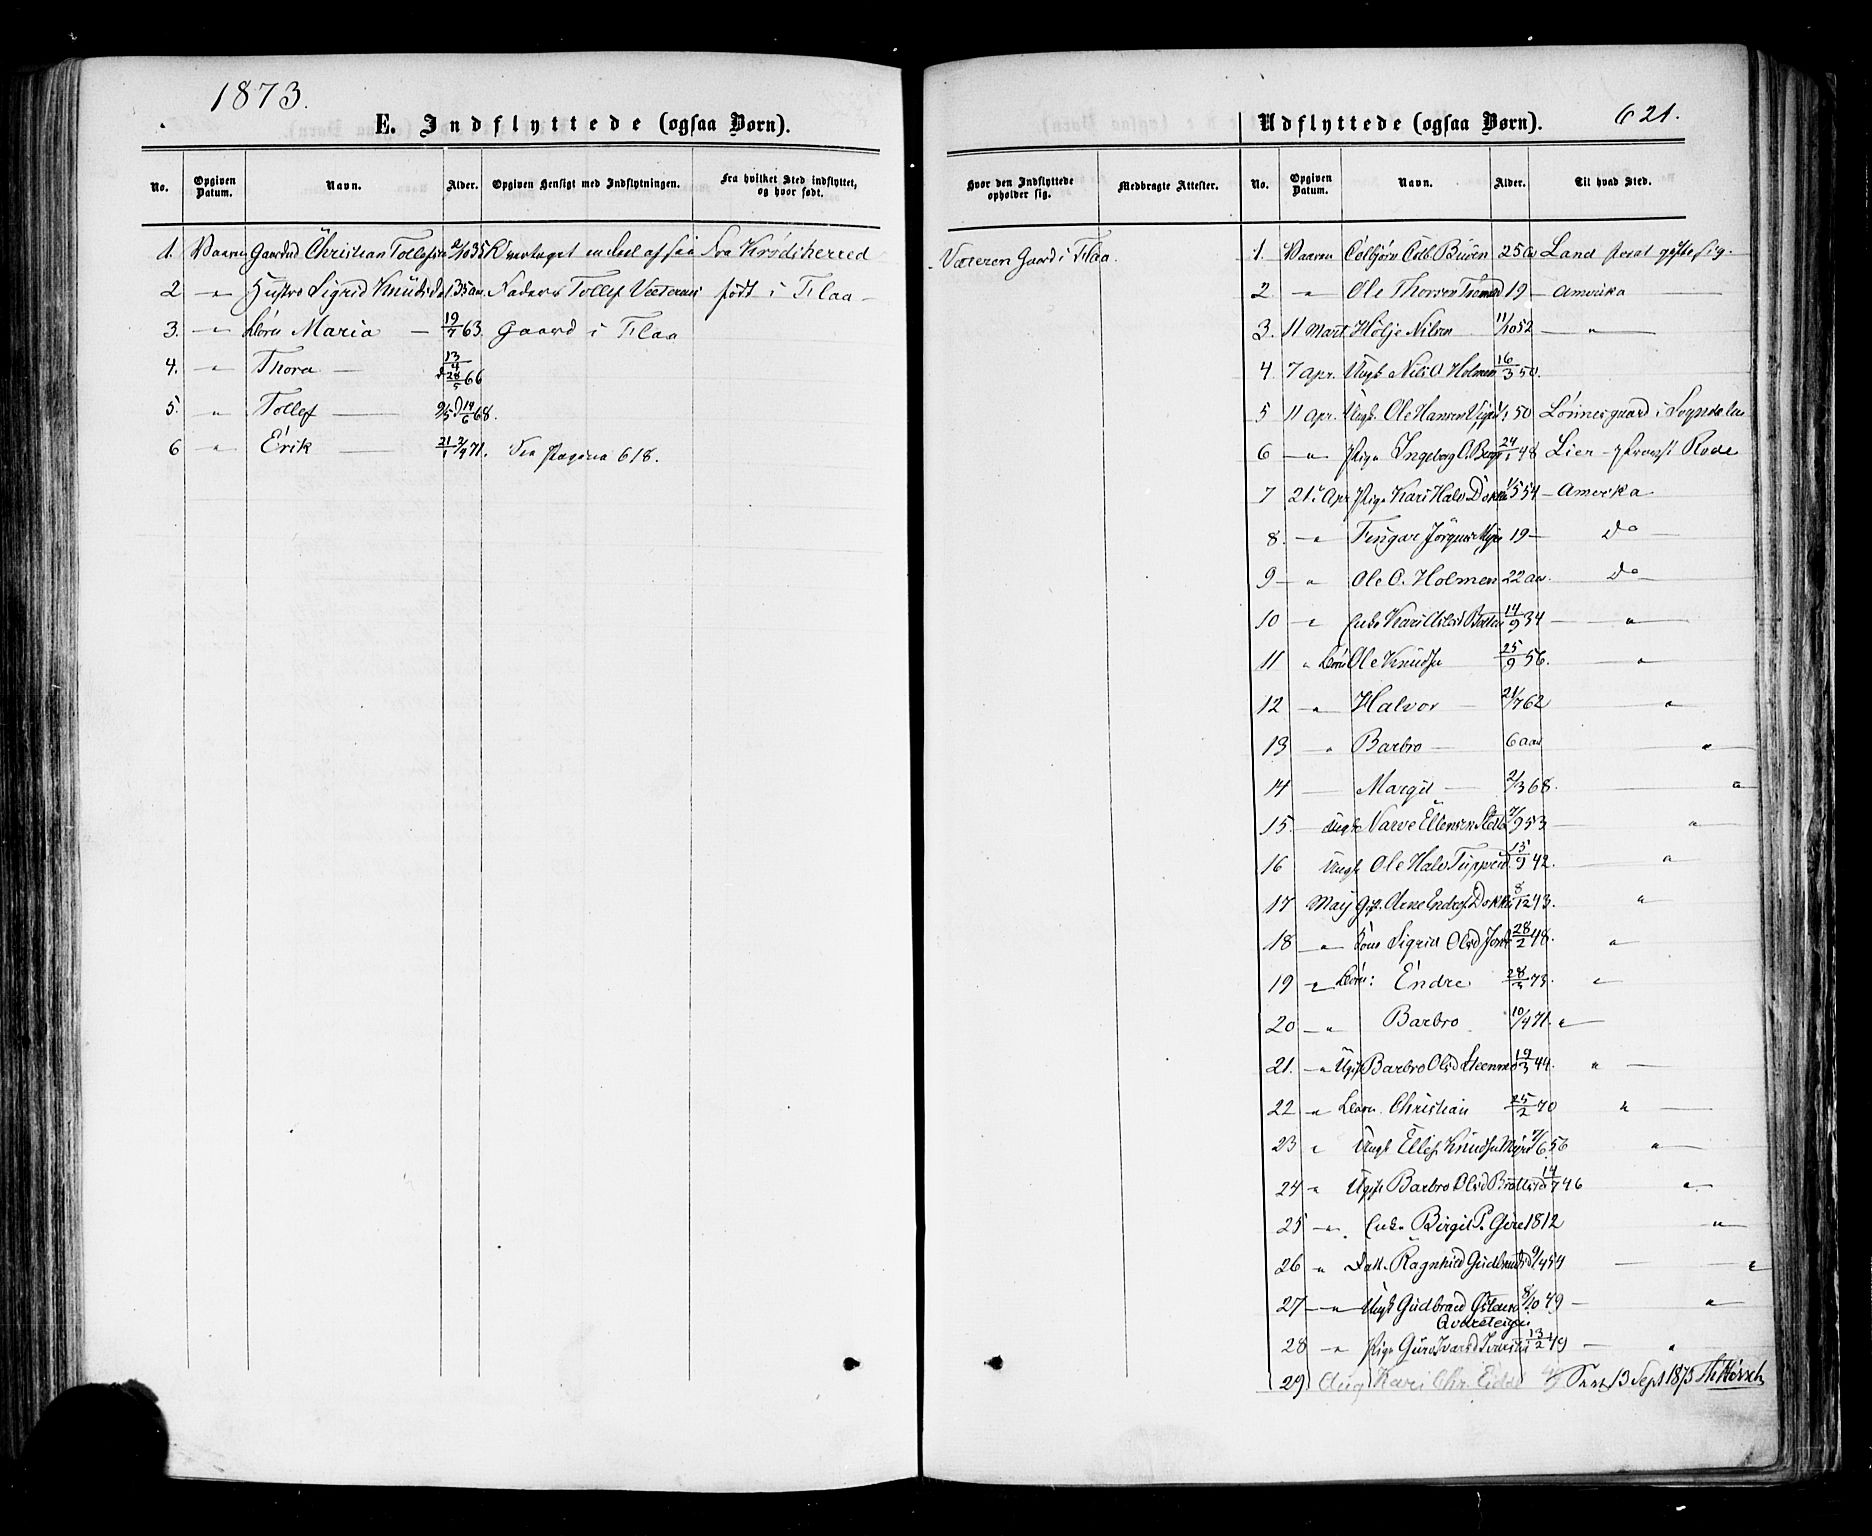 1873.
E. Indflyttede (ogsaa Børn).
No. Opgiven Datum. Navn. Alder. Opgiven Hensigt med Indflytningen. Fra hvilket Sted indflyttet, og hvor født.
1. Vaaren Gaardmd Christian Tollefsen 2/10 35 Overtaget en Deel af sin Fra Krødsherred
2 " Hustro Sigrid Knudsd 35 aar Faders Tollef Væteren født i Flaa
3. " Børn Maria 19/7 63. Gaard i Flaa
4. " Thora 13/4 d 28/5 66
5. " Tollef 9/5 d 14/6 68.
6 " Erik 21/1 2/4 71. See Pagina 618.
621.
Udflyttede (ogsaa Børn).
Hvor den Indflyttede opholder sig. Medbragte Attester. No. Opgiven Datum. Navn. Alder. Til hvad Sted.
Væteren Gaard i Flaa.
1. Vaaren Colbjörn Colb. 25 Land forat gifte sig.
2. " Ole Thorsen 19 Amerika
3. 11 Mart. Holje Nilsen 11/10 52 "
4 7 Apr. Ungk Nils O. Holmen 16/3 50.
5 11 Apr. Ungk. Ole Hansen 50 i
6 " Pige Ingeborg O. 24/1 48 Lier
7 21 Apr Pige Kari Halv Dokken 1/5 54 Amerika
8. " Jörgens 19 Do
9 " Ole O. Holmen 22 aar. Do
10 " Enke Kari 14/9 34 "
11 " Børn Ole Knudsen 25/9 56. "
12 " Halvor 21/7 62 "
13 " Barbro 6 aar "
14 Margit 2/3 68. "
15. Ungk Narve Ellensen 7/9 53 "
16 Ungk Ole Halv 15/9 42. "
17 May Gift. Arne Endres. Dokken 8/12 43. "
18 " Kone Sigrid Olsd 28/2 48. "
19 " Børn: Endre 28/3 73. "
20 " Barbro 10/4 71. "
21. " Ugift Barbro Olsd 19/3 44. "
22 " Barn Christian 25/2 70 "
23 " Ungk Ellef Knudsen 7/6 56 "
24 " Ugift Barbro Olsd 14/7 46 "
25 " Enke Birgit P. 1812 "
26 " Datt. Ragnhild Gudbrandsd 9/4 54 "
27 " Ungk Gudbrand 8/10 49 "
28 " Pige Guro Ivarsd 13/2 49 "
29 Aug Kari Chr. Eidde 13 Sept 1873